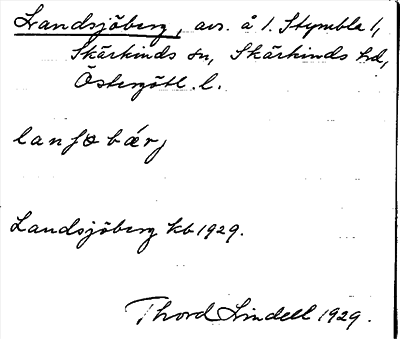 Landsjöberg, avs. å 1. Stymbla 1,
Skärkinds sn, Skärkinds hd,
Östergötl. l.
lanʃobærj
Landsjöberg kb 1929.
Thord Lindell 1929.